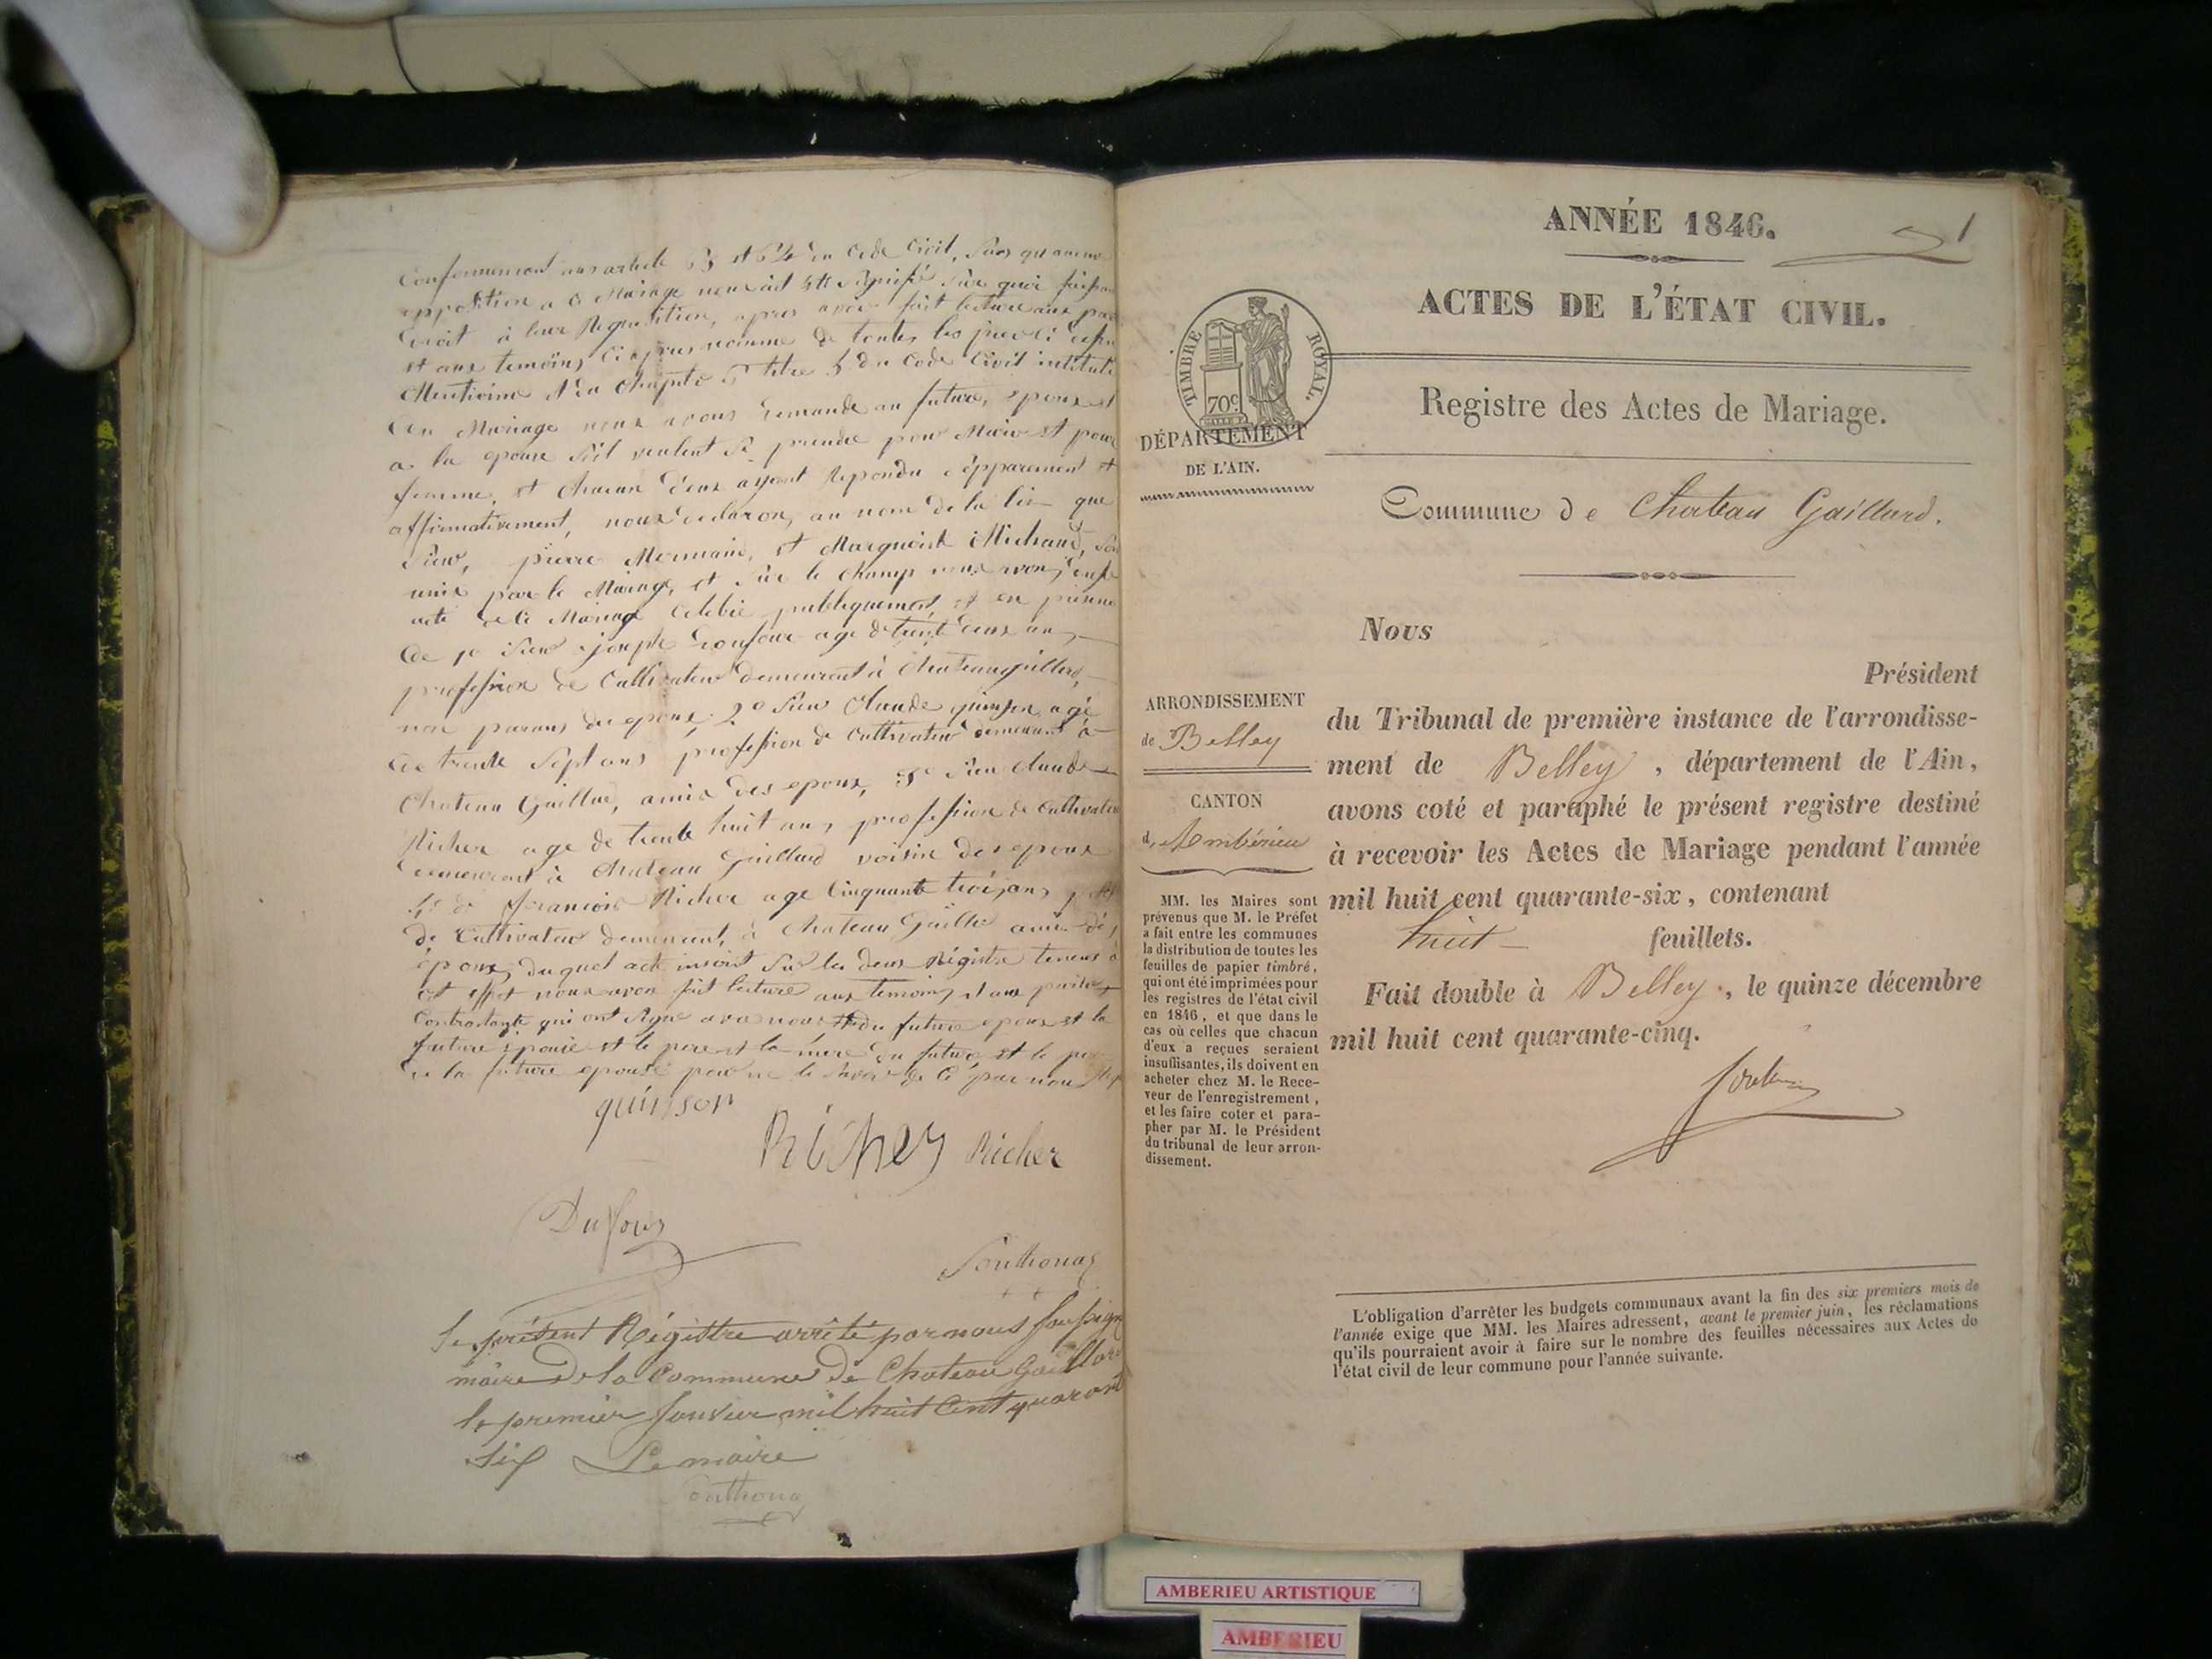 Conformement aux article 63 et 64 du Code Civil, sans qu'aucune
opposition a ce Mariage nous ait été signifié sur quoi faisant
droit à leur Requisition, apres avoir fait lecture aux par
et aux temoins ci apres nommé de toutes les
Mentionné et du Chapitre 6 titre 5 du Code Civil intitulé
du Mariage nous avons demandé au future, epoux et
a la epouse s'il veulent se prendre pour Mari et pour
femme, et chacun d'eux ayant repondu separement et
affirmativement, nous declaron, au nom de la loi que
Sieur, pierre Mermand, et Marguerite Michaud, son
unis par le Mariage, et sur le champ nous avons
acte de ce Mariage celebré publiquement, et en présence
de 1o Sieur joseph age de trente deux ans,
profession de Cultivateur demeurant à Chateaugaillard,
non parans du epoux, 2o Sieur Claude quinson, agé
de trente Sept ans profession de Cultivateur demeurant à
Chateau Gaillard, amis des epoux, 3o Sieur Claude
Richer age de trente huit ans, profession de Cultivateur
demeurant à Chateau Gaillard voisin des epoux
4o francois Richer age Cinquante trois ans
de Cultivateur demeurant, à Chateau Gaillard ami des
époux, duquel acte inscrit Sur les deux Régistre tenus à
cet effet nous avon fait lecture aux temoins, et aux parties
Contractante qui ont signé avec nous du future epoux et la
future epouse et le pere et la mere du future et le pere
de la future epouse pour ne le savoir de ce par nous
quinson
Richer Richer
Dufour
Southonas
Le présent Régistre arrété par nous Soussigné
maire de la Commune de Chateau Gaillard
le premier Janvier mil huit Cent quarante
Six Le maire
Southonas
ANNÉE 1846.
1
ACTES DE L'ÉTAT CIVIL.
TIMBRE ROYAL.
70c
Registre des Actes de Mariage.
DÉPARTEMENT
DE L'AIN.
Commune de Chateau Gaillard.
Nous
Président
ARRONDISSEMENT
de Belley
CANTON
d'Ambérieu
du Tribunal de première instance de l'arrondisse-
ment de Belley, département de l'Ain,
avons coté et paraphé le présent registre destiné
à recevoir les Actes de Mariage pendant l'année
mil huit cent quarante-six, contenant
huit feuillets.
Fait double à Belley, le quinze décembre
mil huit cent quarante-cinq.
MM. les Maires sont
prévenus que M. le Préfet
a fait entre les communes
la distribution de toutes les
feuilles de papier timbré,
qui ont été imprimées pour
les registres de l'état civil
en 1846, et que dans le
cas où celles que chacun
d'eux a reçues seraient
insuffisantes, ils doivent en
acheter chez M. le Rece-
veur de l'enregistrement,
et les faire coter et para-
pher par M. le Président
du tribunal de leur arron-
dissement.
L'obligation d'arrêter les budgets communaux avant la fin des six premiers mois de
l'année exige que MM. les Maires adressent, avant le premier juin, les réclamations
qu'ils pourraient avoir à faire sur le nombre des feuilles nécessaires aux Actes de
l'état civil de leur commune pour l'année suivante.
AMBERIEU ARTISTIQUE
AMBERIEU